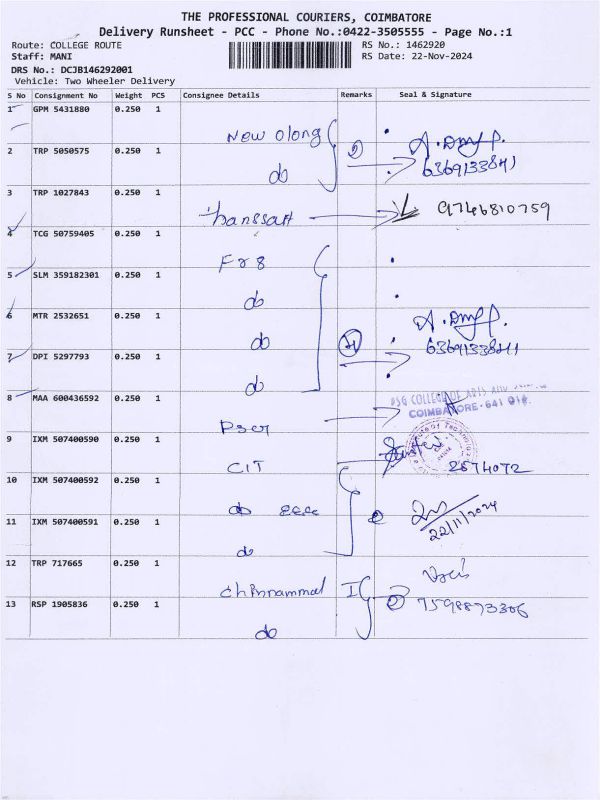 THE PROFESSIONAL COURIERS, COIMBATORE
Delivery Runsheet - PCC - Phone No.:0422-3505555 - Page No.:1
Route: COLLEGE ROUTE
RS No.: 1462920
Staff: MANI
RS Date: 22-Nov-2024
DRS No.: DCJB146292001
Vehicle: Two Wheeler Delivery
S No Consignment No Weight PCS Consignee Details Remarks Seal & Signature
1 GPM 5431880 0.250 1
New
2 TRP 5050575 0.250 1
do
6369133841
3 TRP 1027843 0.250 1
9746810759
4 TCG 50759405 0.250 1
5 SLM 359182301 0.250 1
do
6 MTR 2532651 0.250 1
do
6369133841
7 DPI 5297793 0.250 1
do
8 MAA 600436592 0.250 1
PSG COLLEGE OF ARTS AND
COIMBATORE - 641 014.
9 IXM 507400590 0.250 1
CIT
2574072
10 IXM 507400592 0.250 1
do
22/11/2024
11 IXM 507400591 0.250 1
do
12 TRP 717665 0.250 1
Chinnammal
13 RSP 1905836 0.250 1
7598873306
do